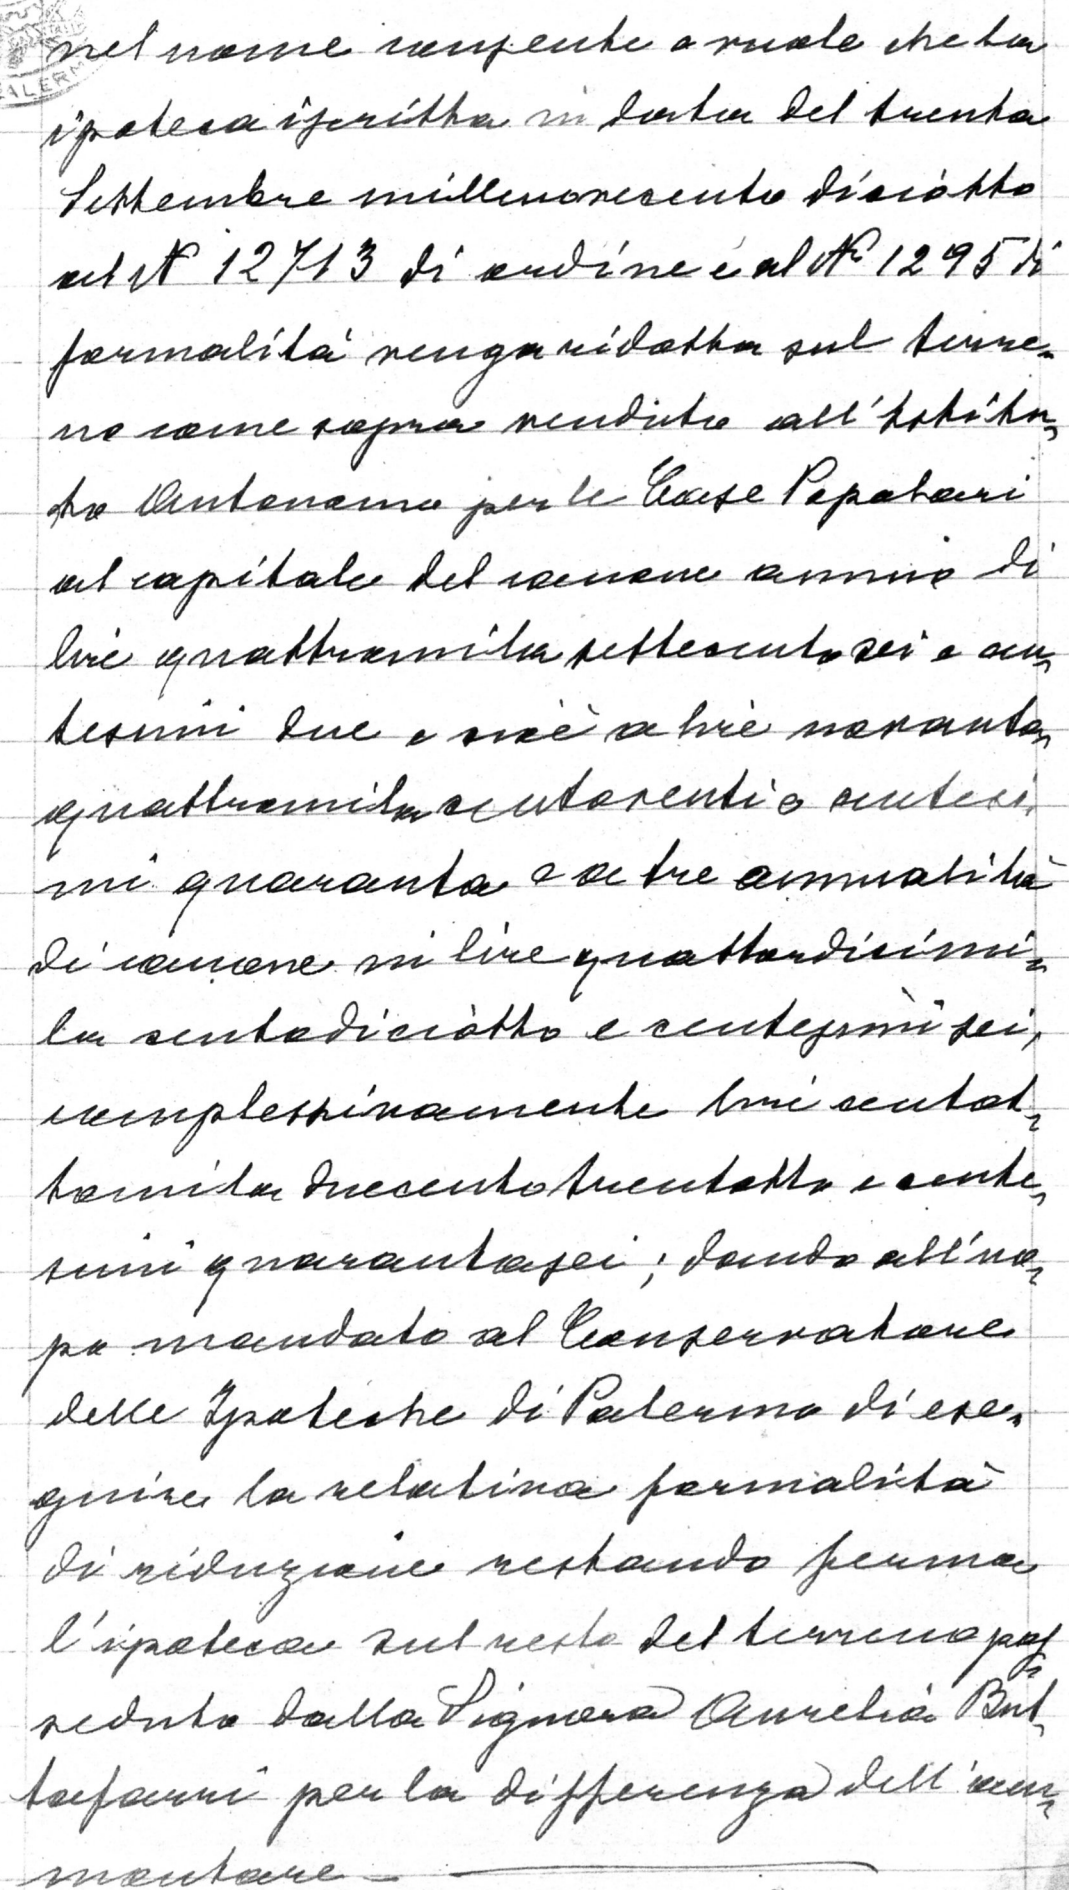 nel nome consente e vuole che la
ipoteca iscritta in data del trenta
Settembre millenovecento diciotto
al N° 12713 di ordine e al N° 1295 di
formalità venga ridotta sul terre-
no come sopra venduto all'Istitu-
to Autonomo per le Case Popolari
al capitale del canone annuo di
lire quattromila settecentosei e cen-
tesimi due e cioè a lire novanta-
quattromila centoventi e centesi-
mi quaranta e a tre annualità
di canone in lire quattordicimi-
la centodiciotto e centesimi sei,
complessivamente lire centot-
tomila duecentotrentotto e cente-
simi quarantasei; dando all'uo-
po mandato al Conservatore
delle Ipoteche di Palermo di ese-
guire la relativa formalità
di riduzione restando ferma
l'ipoteca sul resto del terreno pos-
seduto dalla Signora Aurelia But-
tafarri per la differenza dell'am-
montare